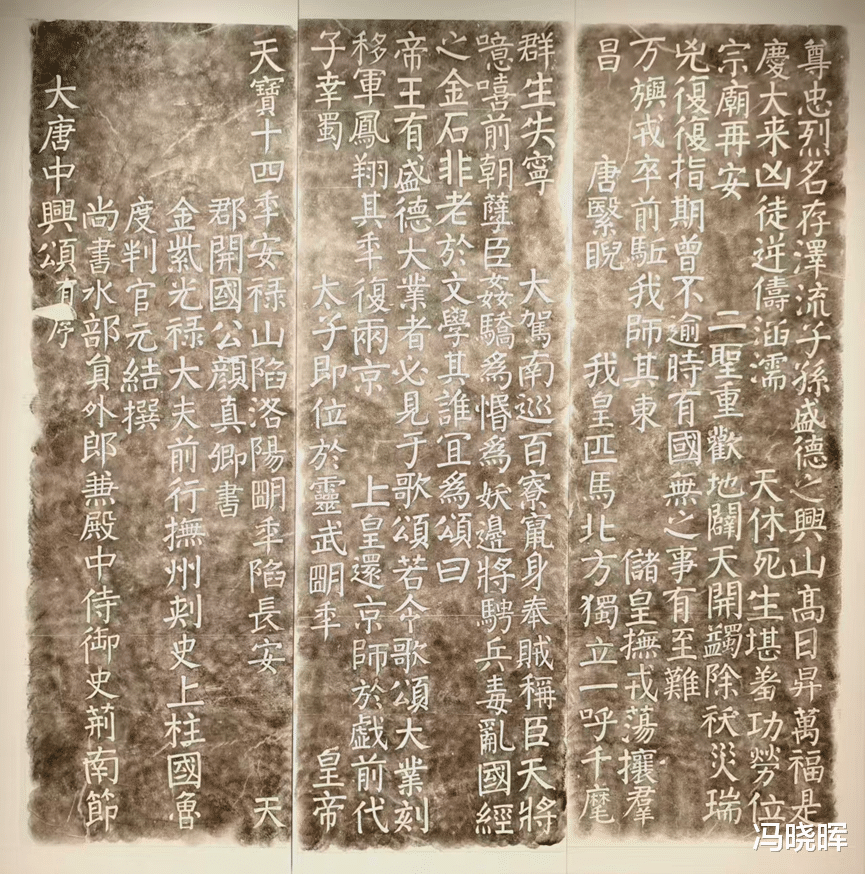 大唐中興頌有序
尚書水部員外郎兼殿中侍御史荊南節
度判官元結撰
金紫光禄大夫前行撫州刺史上柱國魯
郡開國公顏真卿書
天寶十四年安禄山陷洛陽明年陷長安 天
子幸蜀 太子即位於靈武明年 皇帝
移軍鳳翔其年復兩京 上皇還京師於戯前代
帝王有盛德大業者必見于歌頌若今歌頌大業刻
之金石非老於文學其誰宜為頌曰
噫嘻前朝孽臣姦驕為惛為妖邊將騁兵毒亂國經
群生失寧 大駕南巡百寮竄身奉賊稱臣天將
昌 唐繄睨 我皇匹馬北方獨立一呼千麾
万旟戎卒前駈我師其東 儲皇撫戎蕩攘羣
兇復復指期曾不逾時有國無之事有至難
宗廟再安 二聖重歡地闢天開蠲除祅災瑞
慶大来凶徒逆儔涵濡 天休死生堪羞功勞位
尊忠烈名存澤流子孫盛德之興山高日昇萬福是
冯晓晖